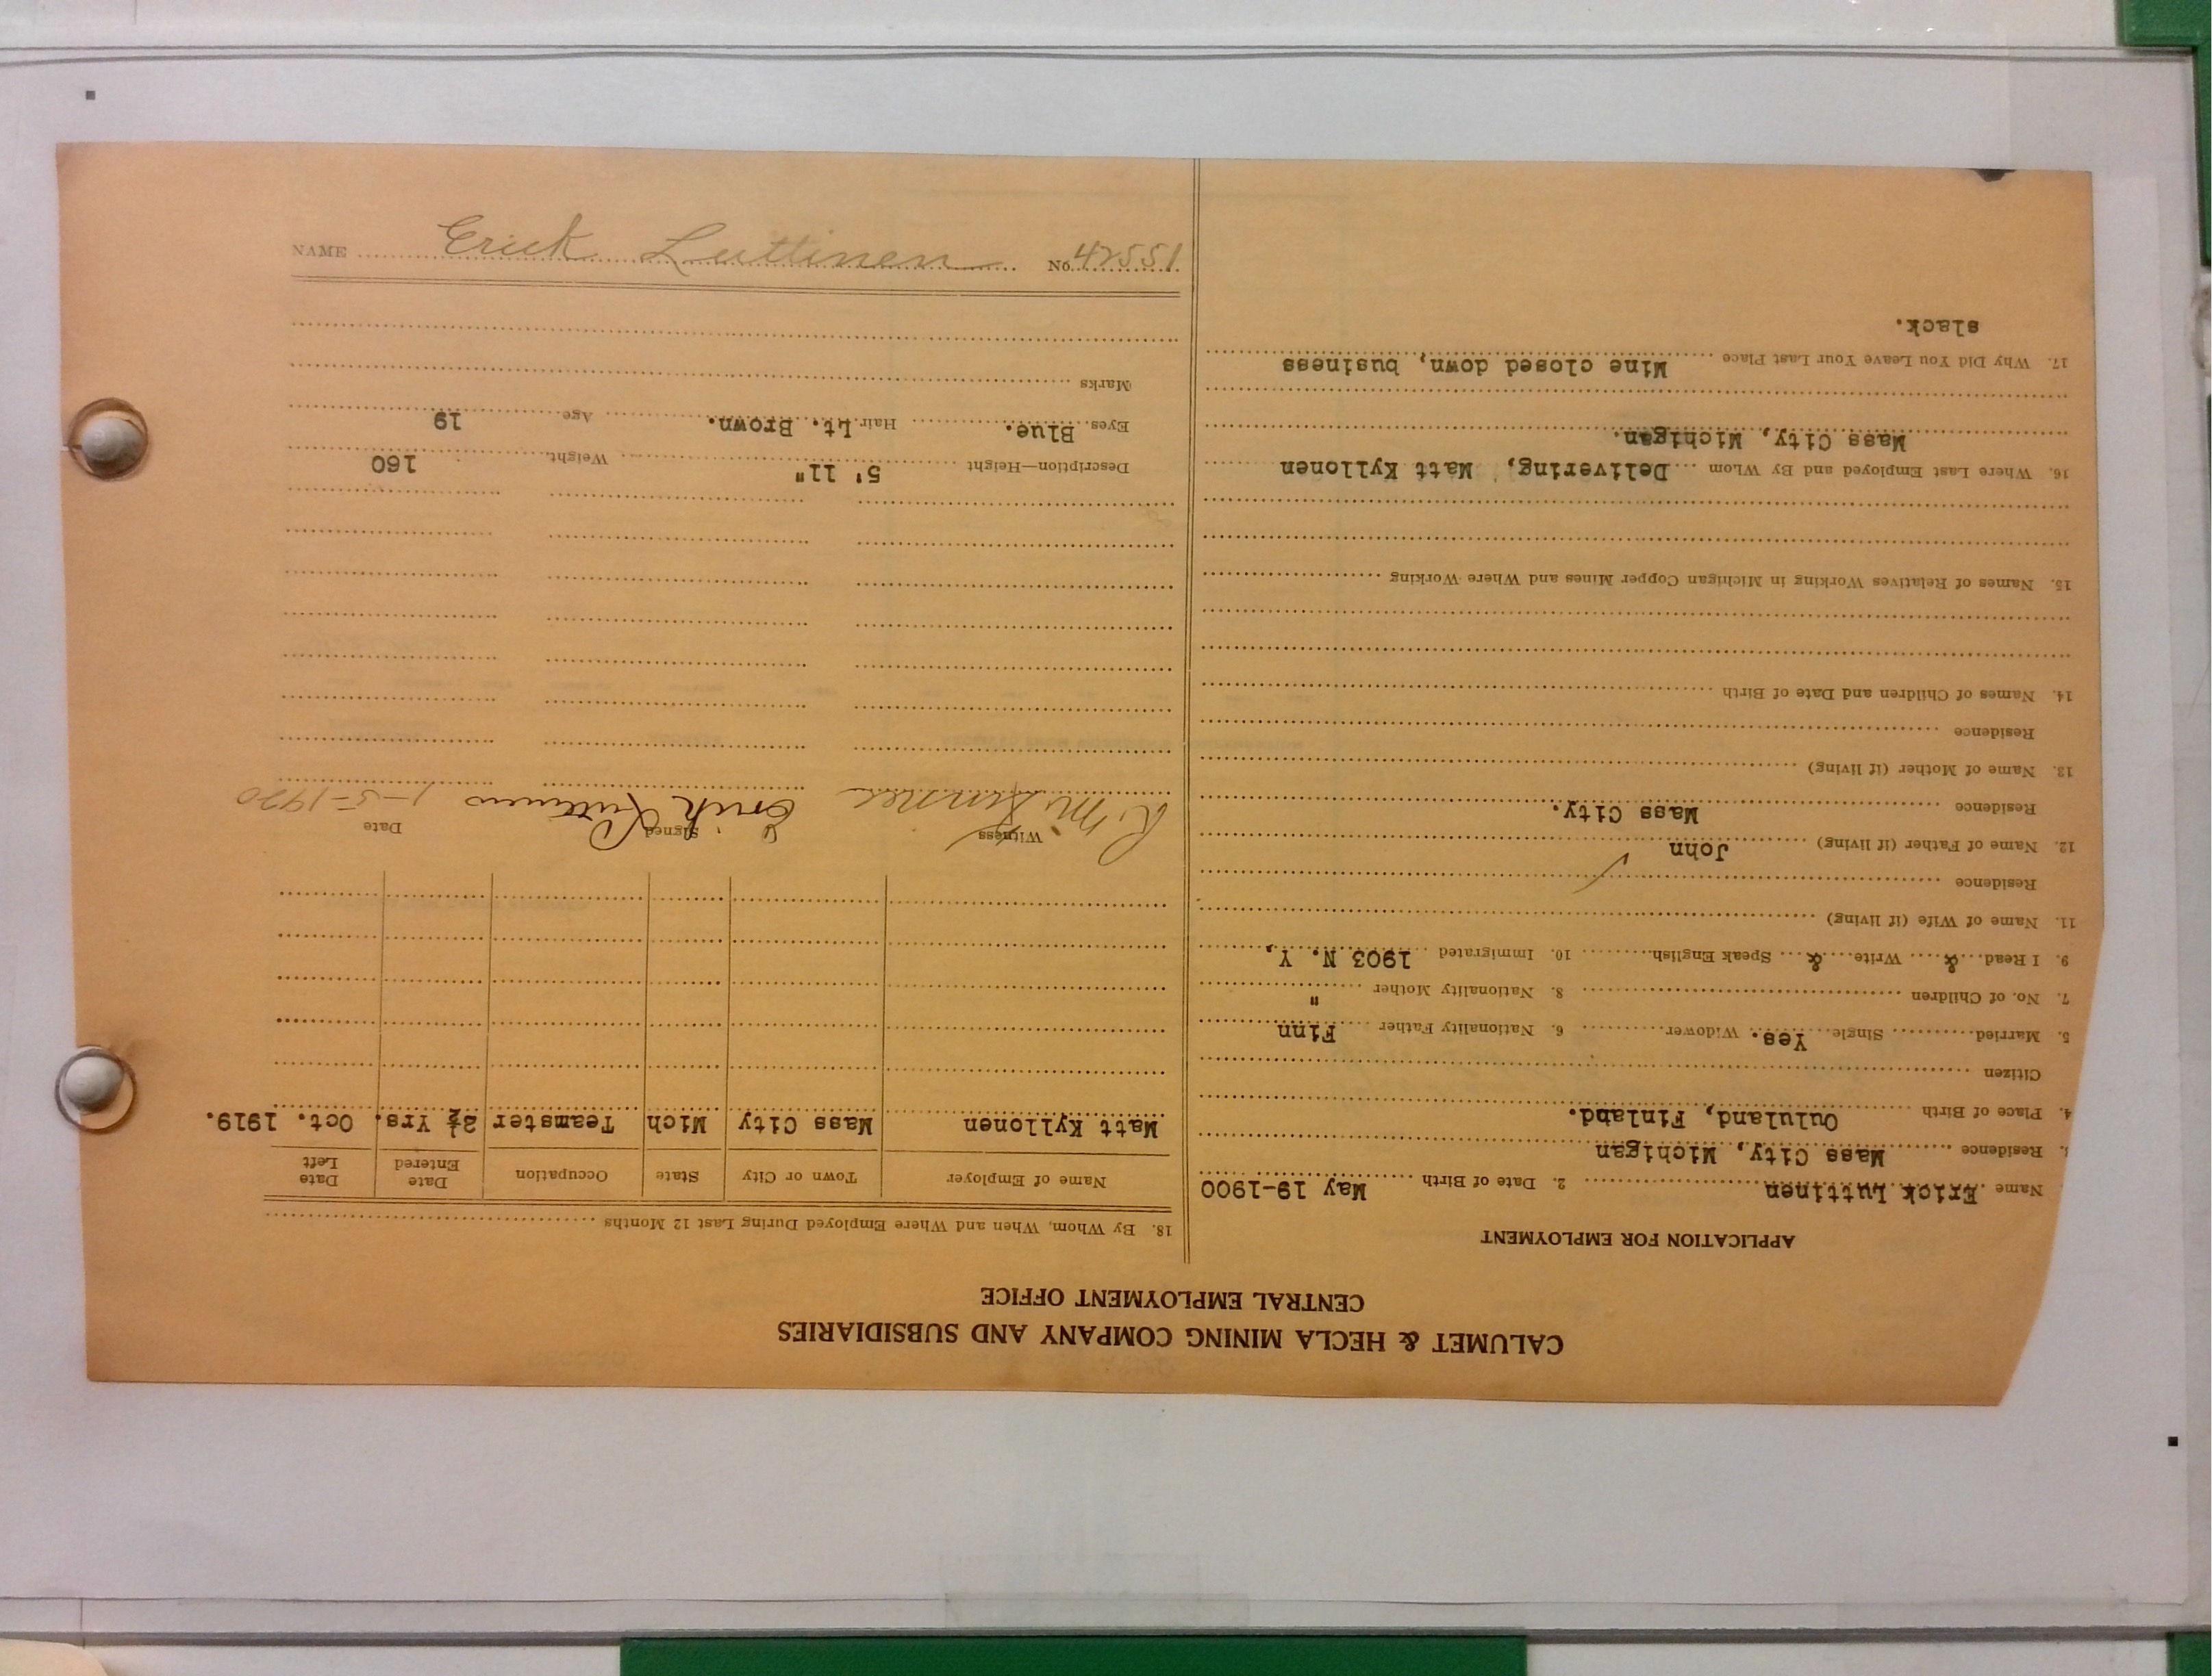 CALUMET & HECLA MINING COMPANY AND SUBSIDIARIES
CENTRAL EMPLOYMENT OFFICE
APPLICATION FOR EMPLOYMENT
Name Erick Luttinen 2. Date of Birth May 19-1900
Residence Mass City, Michigan
4. Place of Birth Oululand, Finland.
Citizen
5. Married Single Yes. Widower 6. Nationality Father Finn
7. No. of Children 8. Nationality Mother "
9. I Read & Write & Speak English 10. Immigrated 1903 N. Y,
11. Name of Wife (if living)
Residence
12. Name of Father (if living) John
Residence Mass City.
13. Name of Mother (if living)
Residence
14. Names of Children and Date of Birth
15. Names of Relatives Working in Michigan Copper Mines and Where Working
16. Where Last Employed and By Whom Delivering, Matt Kyllonen
Mass City, Michigan.
17. Why Did You Leave Your Last Place Mine closed down, business
slack.
18. By Whom, When and Where Employed During Last 12 Months
Name of Employer Town or City State Occupation Date Entered Date Left
Matt Kyllonen Mass City Mich Teamster 2½ Yrs. Oct. 1919.
Witness Signed Erick Luttinen Date 1-5-1920
Description—Height 5' 11" Weight 160
Eyes Blue. Hair Lt. Brown. Age 19
Marks
NAME Erick Luttinen No. 42551